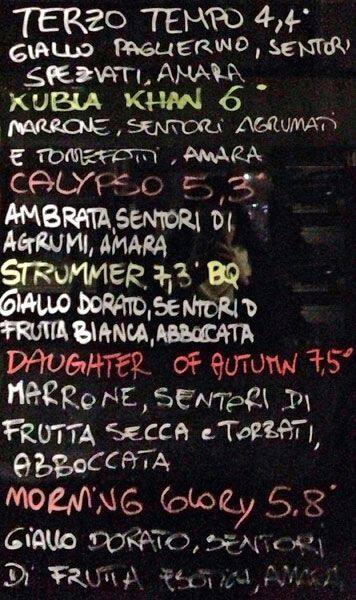 TERZO TEMPO 4,4°
GIALLO PAGLIERINO, SENTORI
SPEZIATI, AMARA
KUBLA KHAN 6°
MARRONE, SENTORI AGRUMATI
E TORREFATTI, AMARA
CALYPSO 5,3°
AMBRATA, SENTORI DI
AGRUMI, AMARA
STRUMMER 7,3° BQ
GIALLO DORATO, SENTORI D
FRUTTA BIANCA, ABBOCCATA
DAUGHTER OF AUTUMN 7,5°
MARRONE, SENTORI DI
FRUTTA SECCA e TORBATI,
ABBOCCATA
MORNING GLORY 5.8°
GIALLO DORATO, SENTORI
DI FRUTTA ESOTICA, AMARA